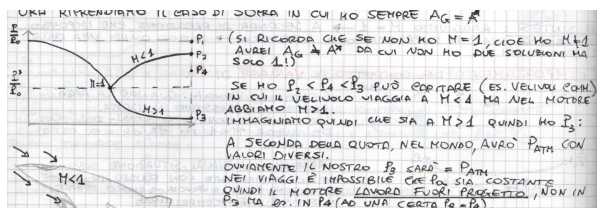 ORA RIPRENDIAMO IL CASO DI SOPRA IN CUI HO SEMPRE AG = A*
P/P0
P1
(SI RICORDA CHE SE NON HO M=1, CIOÈ HO M≠1
P2
AVREI AG ≠ A* DA CUI NON HO DUE SOLUZIONI MA
M<1
P4
SOLO 1!)
P*/P0
M=1
SE HO P2 < P4 < P3 PUÒ CAPITARE (ES. VELIVOLI COMM.)
IN CUI IL VELIVOLO VIAGGIA A M<1 MA NEL MOTORE
M>1
ABBIAMO M>1.
P3
IMMAGINIAMO QUINDI CHE SIA A M>1 QUINDI HO P3:
A SECONDA DELLA QUOTA, NEL MONDO, AVRÒ PATM CON
VALORI DIVERSI.
M<1
OVVIAMENTE IL NOSTRO P3 SARÀ = PATM
NEI VIAGGI È IMPOSSIBILE CHE SIA COSTANTE
QUINDI IL MOTORE LAVORA FUORI PROGETTO, NON IN
P3 MA ES. IN P4 (AD UNA CERTA